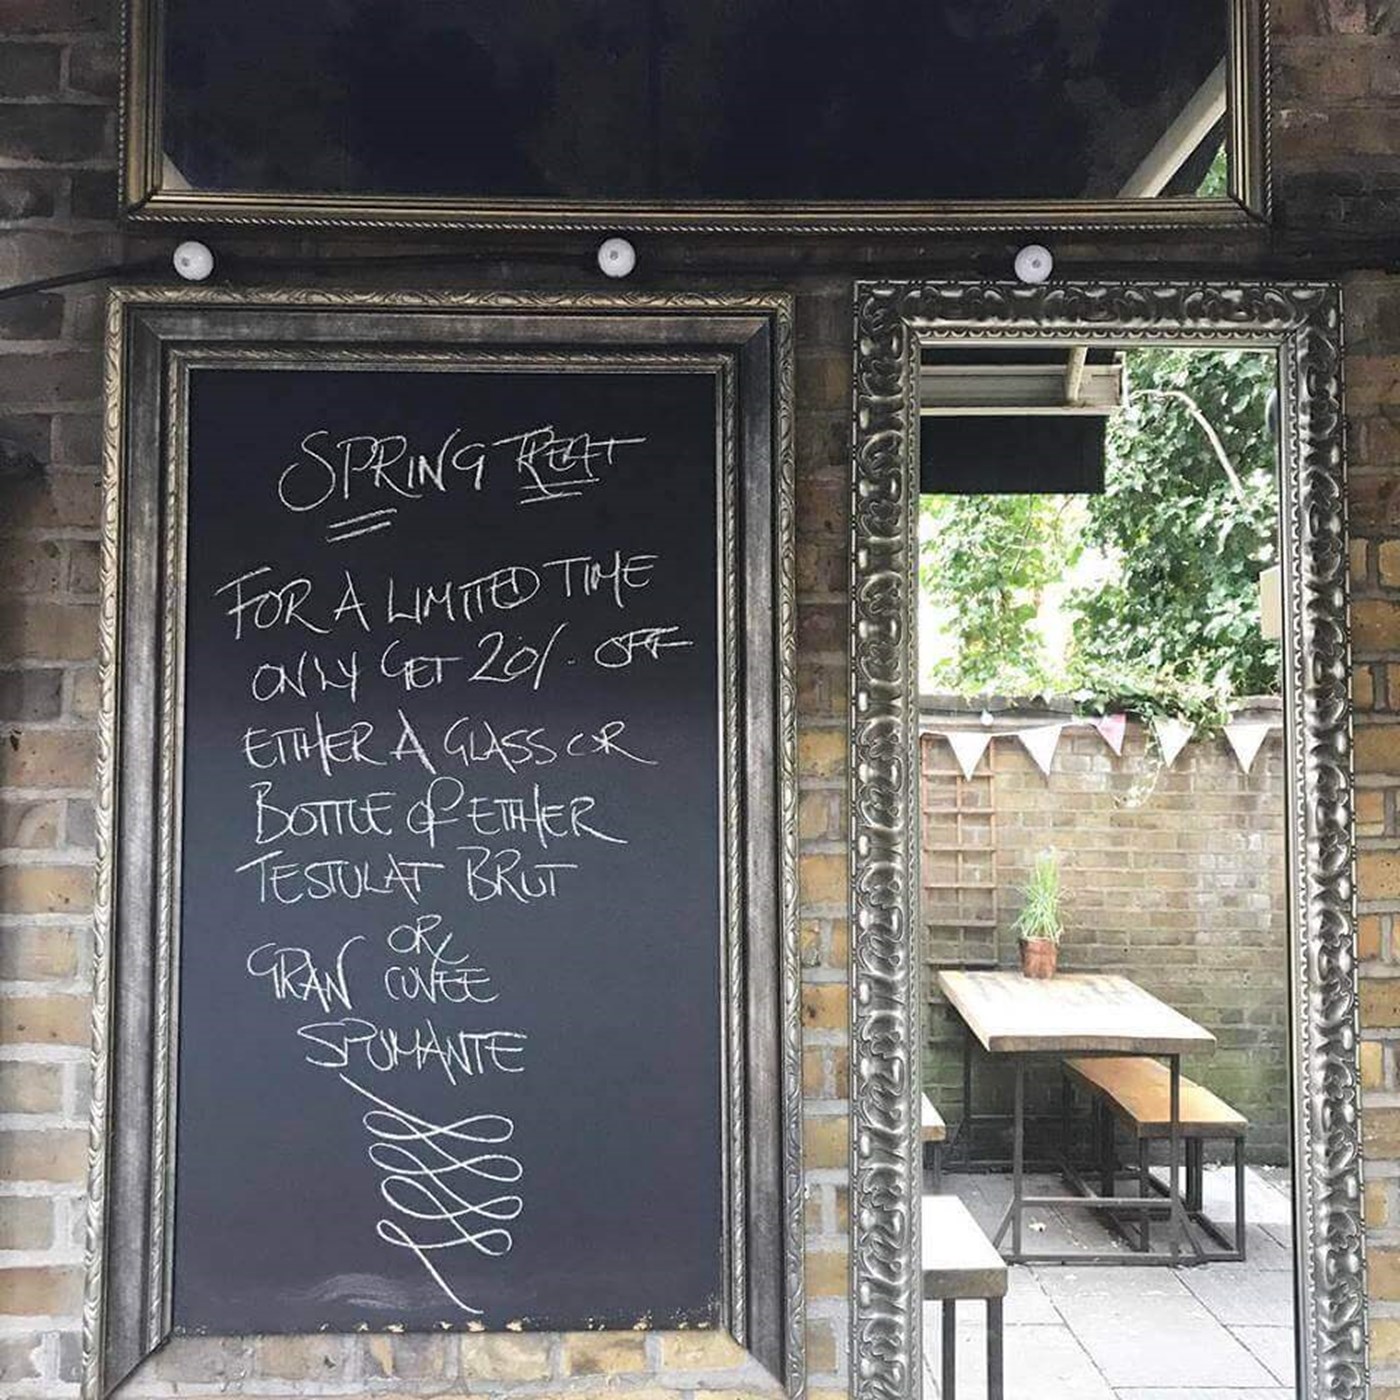 SPRING TREAT
FOR A LIMITED TIME
ONLY GET 20%. OFF
EITHER A GLASS OR
BOTTLE OF EITHER
TESTULAT BRUT
OR
GRAN CUVEE
SPUMANTE